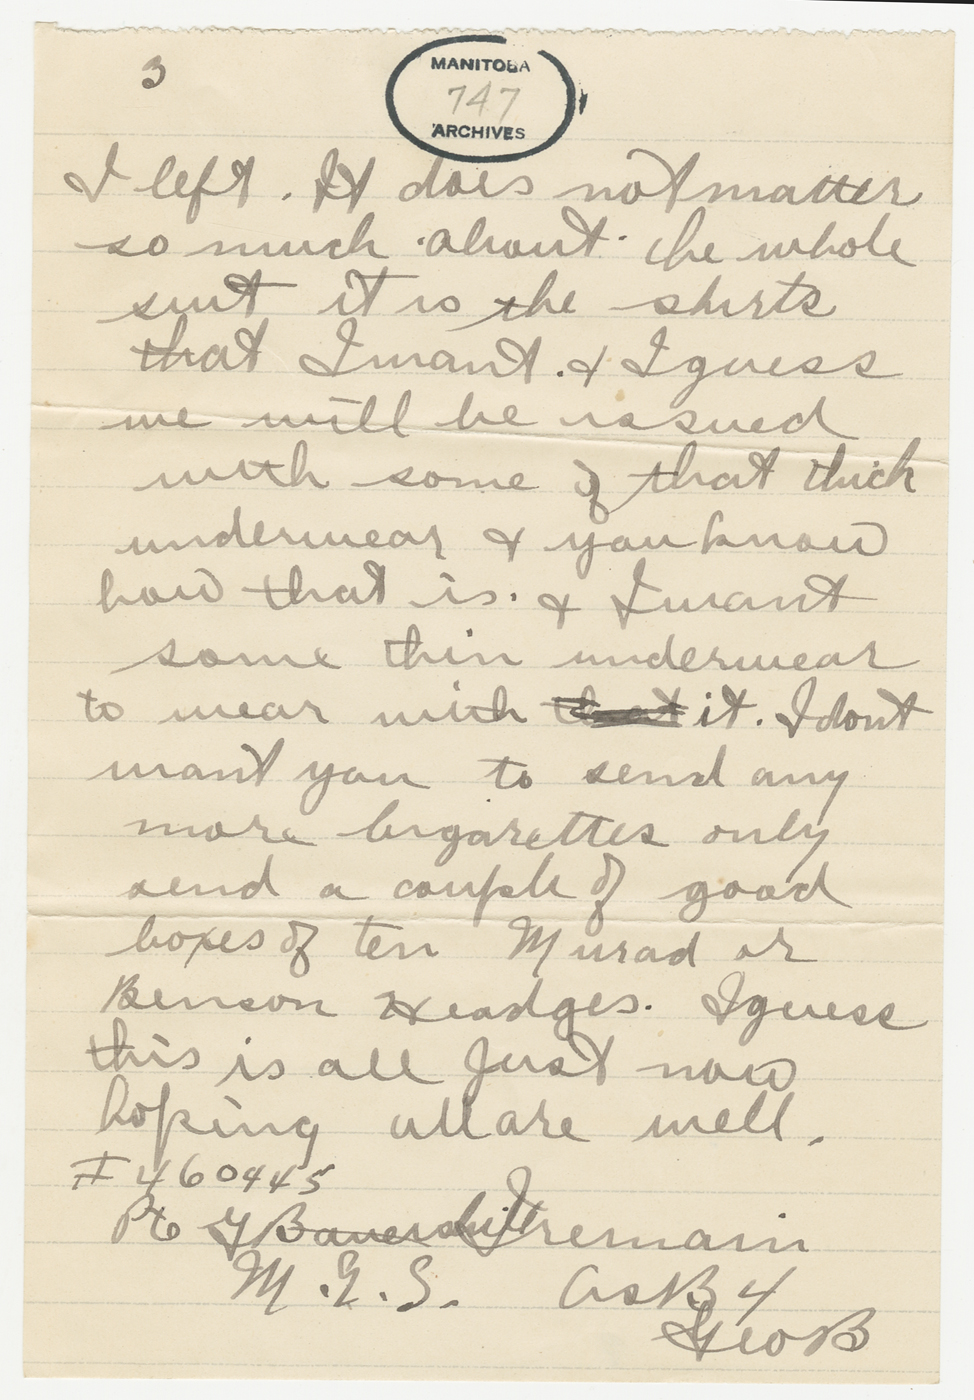 3
MANITOBA
747
ARCHIVES
I left. It does not matter
so much about the whole
suit it is the shirts
that I want. & I guess
we will be issued
with some of that thick
underwear & you know
how that is. & I want
some thin underwear
to wear with that it. I dont
want you to send any
more Cigarettes only
send a couple of good
boxes of ten Murad or
Benson Headges. I guess
this is all Just now
hoping all are well.
# 460445
I remain
Pte G Bauerdalitt
M.G.S. as B 4
Geo B